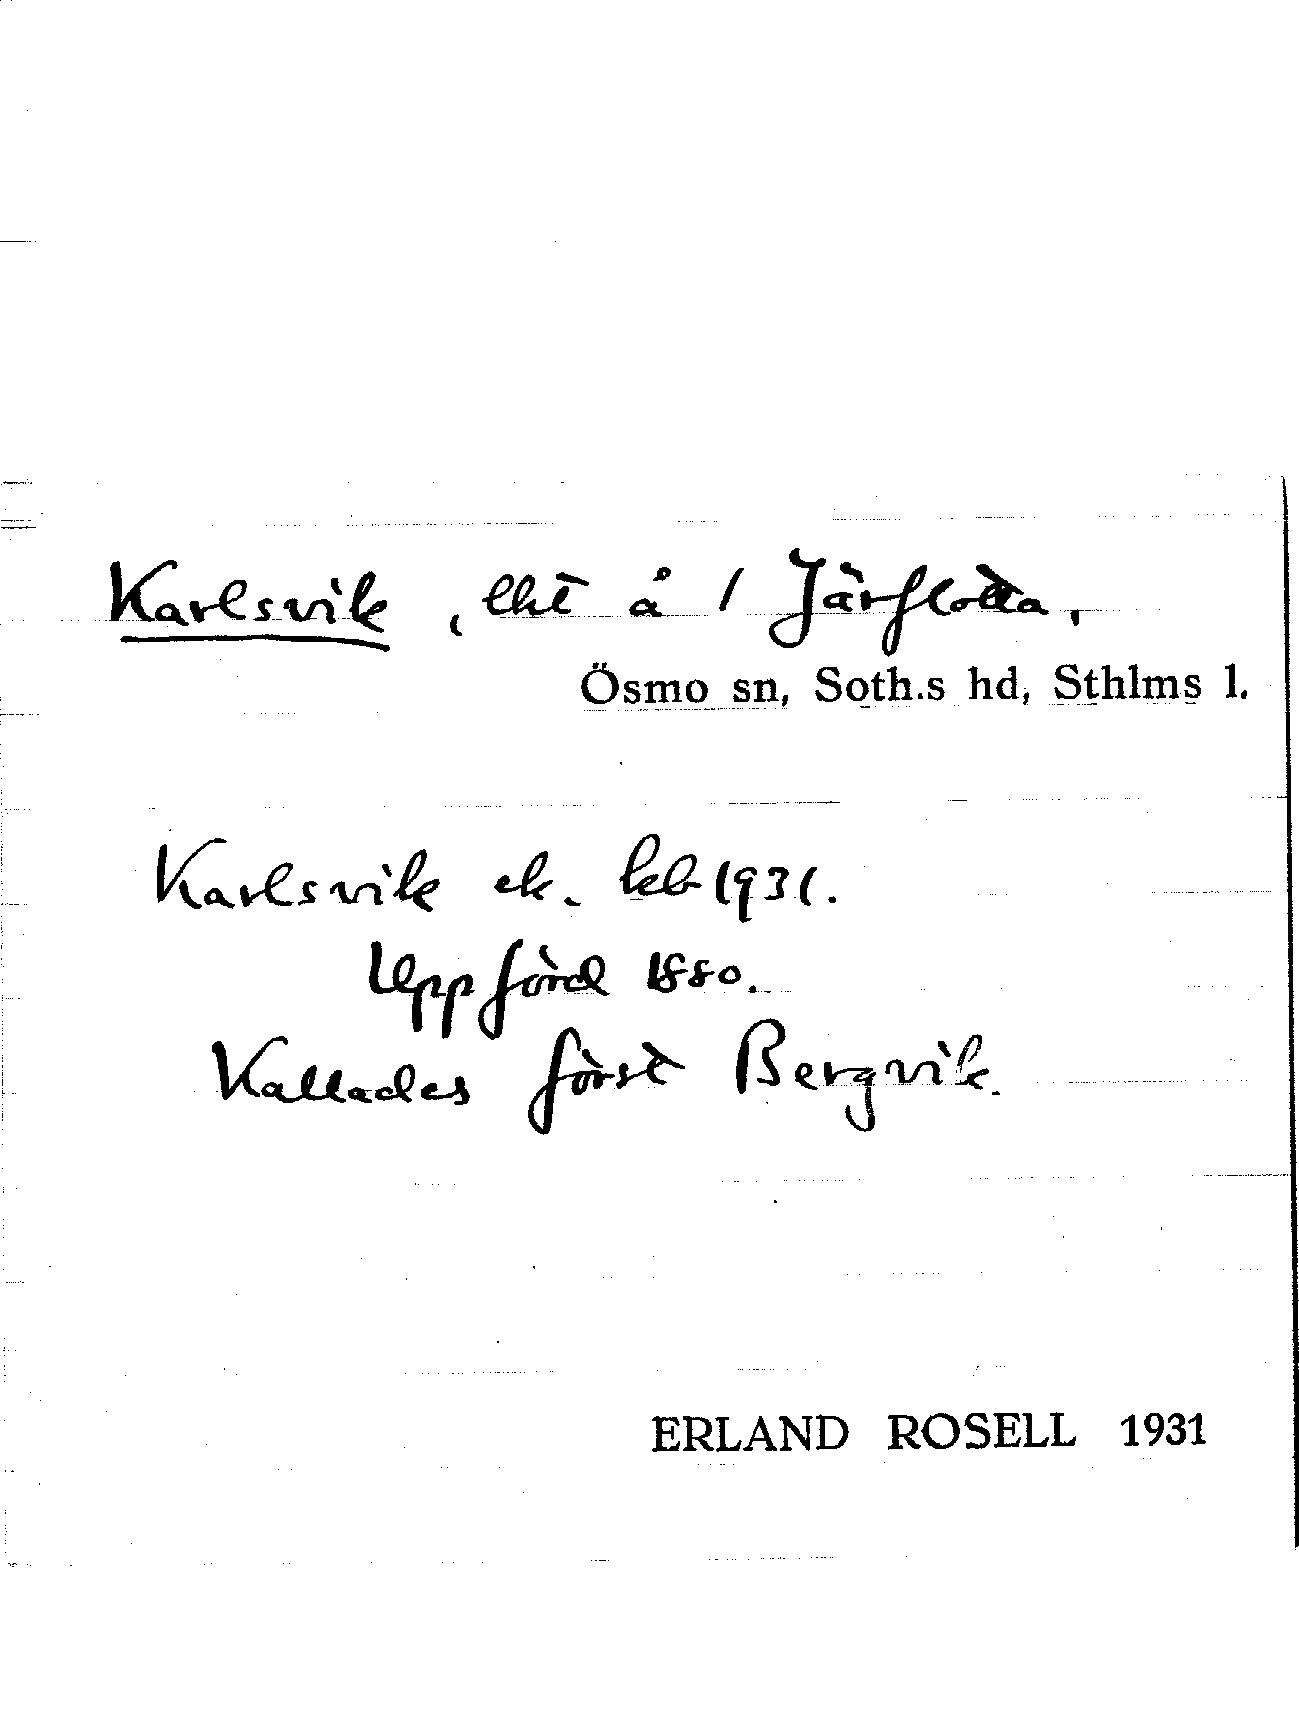 Karlsvik, lht å 1 Järflotta.
Ösmo sn, Soth.s hd, Sthlms l.
Karlsvik ek. kb 1931.
Uppförd 1880.
Kallades först Bergvik.
ERLAND ROSELL 1931